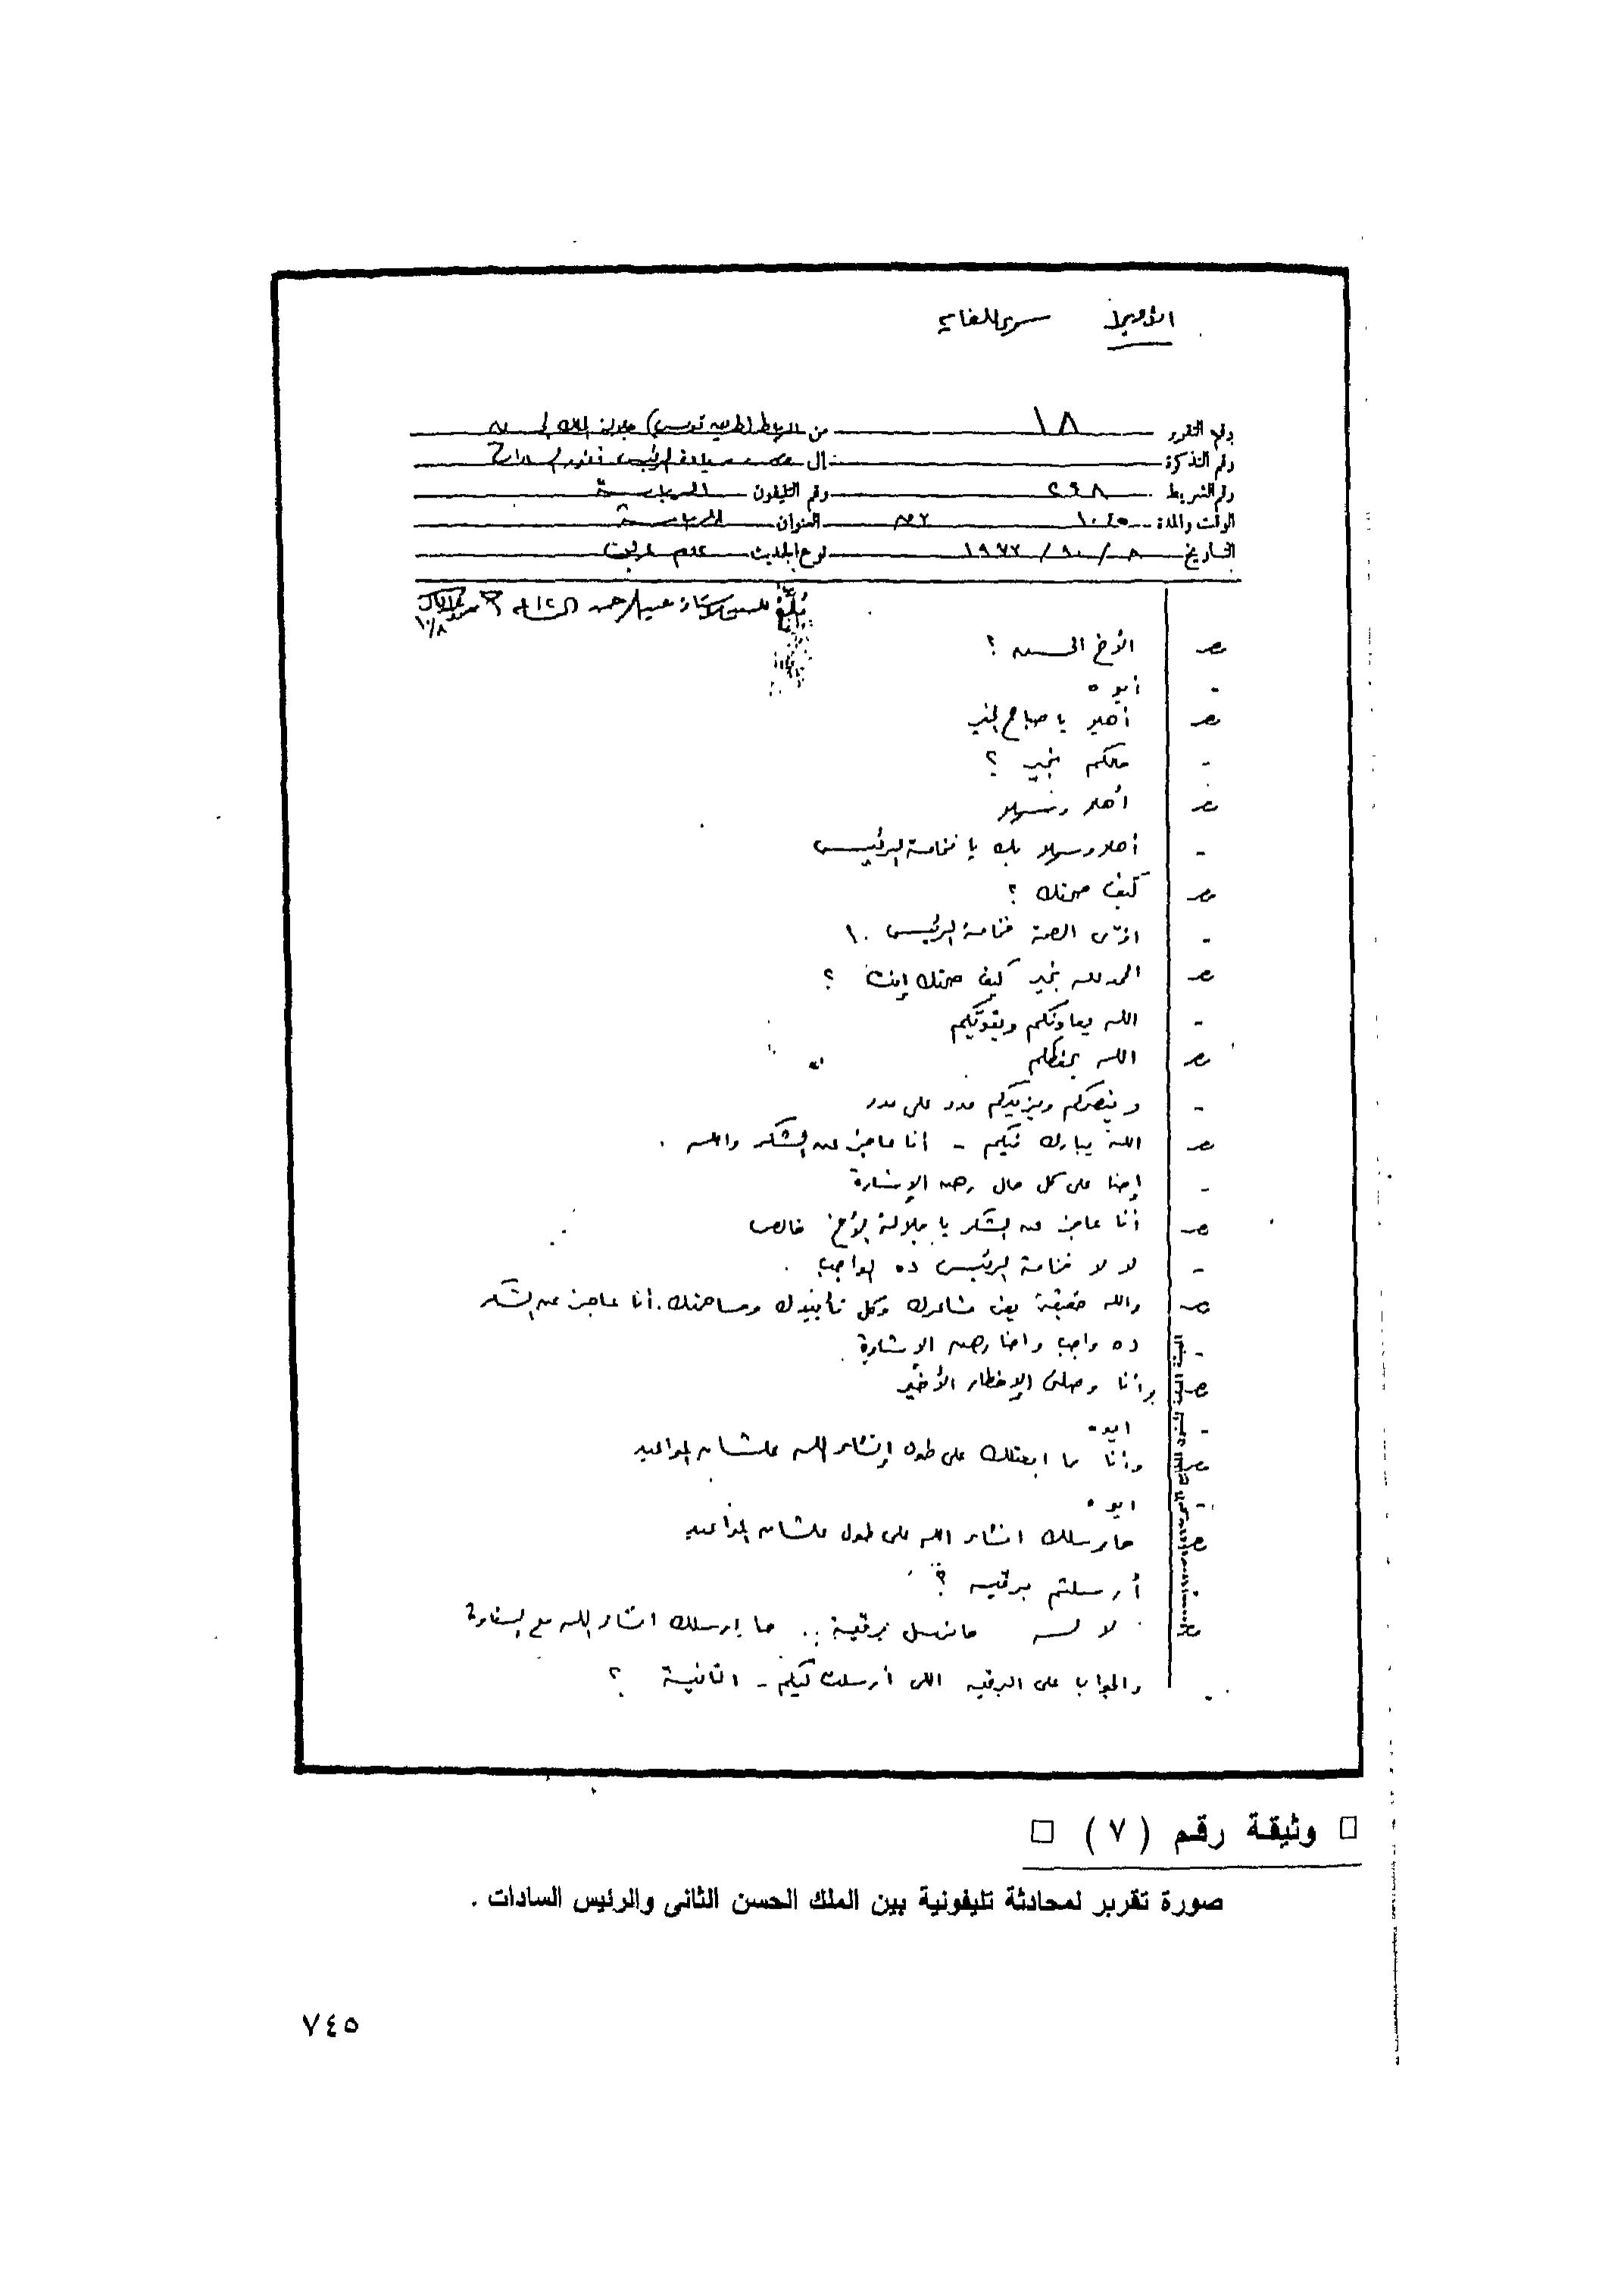 سرى للغاية
رقم التقرير ١٨ من الرباط جلالة الملك الحسن
رقم التذكرة الى سيادة الرئيس أنور السادات
رقم الشريط ٢٩٨ رقم التليفون الرياسة
الوقت والمدة العنوان الرياسة
التاريخ ٨ / ١٠ / ١٩٧٣ نوع الحديث
الأخ الحسن ؟
- أيوه
أهلا يا صباح الخير
- حالكم بخير ؟
أهلا وسهلا
- أهلا وسهلا بك يا فخامة الرئيس
كيف صحتك ؟
- ازى الصحة فخامة الرئيس
الحمد لله بخير كيف صحتك إنت ؟
- الله يعاونكم ويقويكم
الله يحفظكم
- وينصركم ويزيدكم مدد على مدد
الله يبارك فيكم - أنا عاجز عن الشكر والله .
- إحنا على كل حال رهن الإشارة
أنا عاجز عن الشكر يا جلالة الأخ خالص
- لا لا فخامة الرئيس ده الواجب .
والله حقيقة يعنى مشاعرك وكل تأييدك ومساهمتك . أنا عاجز عن الشكر
- ده واجب واحنا رهن الاشارة .
وأنا وصلنى الإخطار الأخير
- ايوه
وأنا حا ابعتلك على طول إنشاء الله علشان المواعيد
- ايوه
حا ارسلك انشاء الله على طول علشان المواعيد
- أرسلتم برقيه ؟
لا لسه حانرسل برقية .. حا ارسلك انشاء الله مع السفارة
- والجواب على البرقيه اللى أرسلت ليكم - الثانية ؟
□ وثيقة رقم ( ٧ ) □
صورة تقرير لمحادثة تليفونية بين الملك الحسن الثانى والرئيس السادات .
٧٤٥